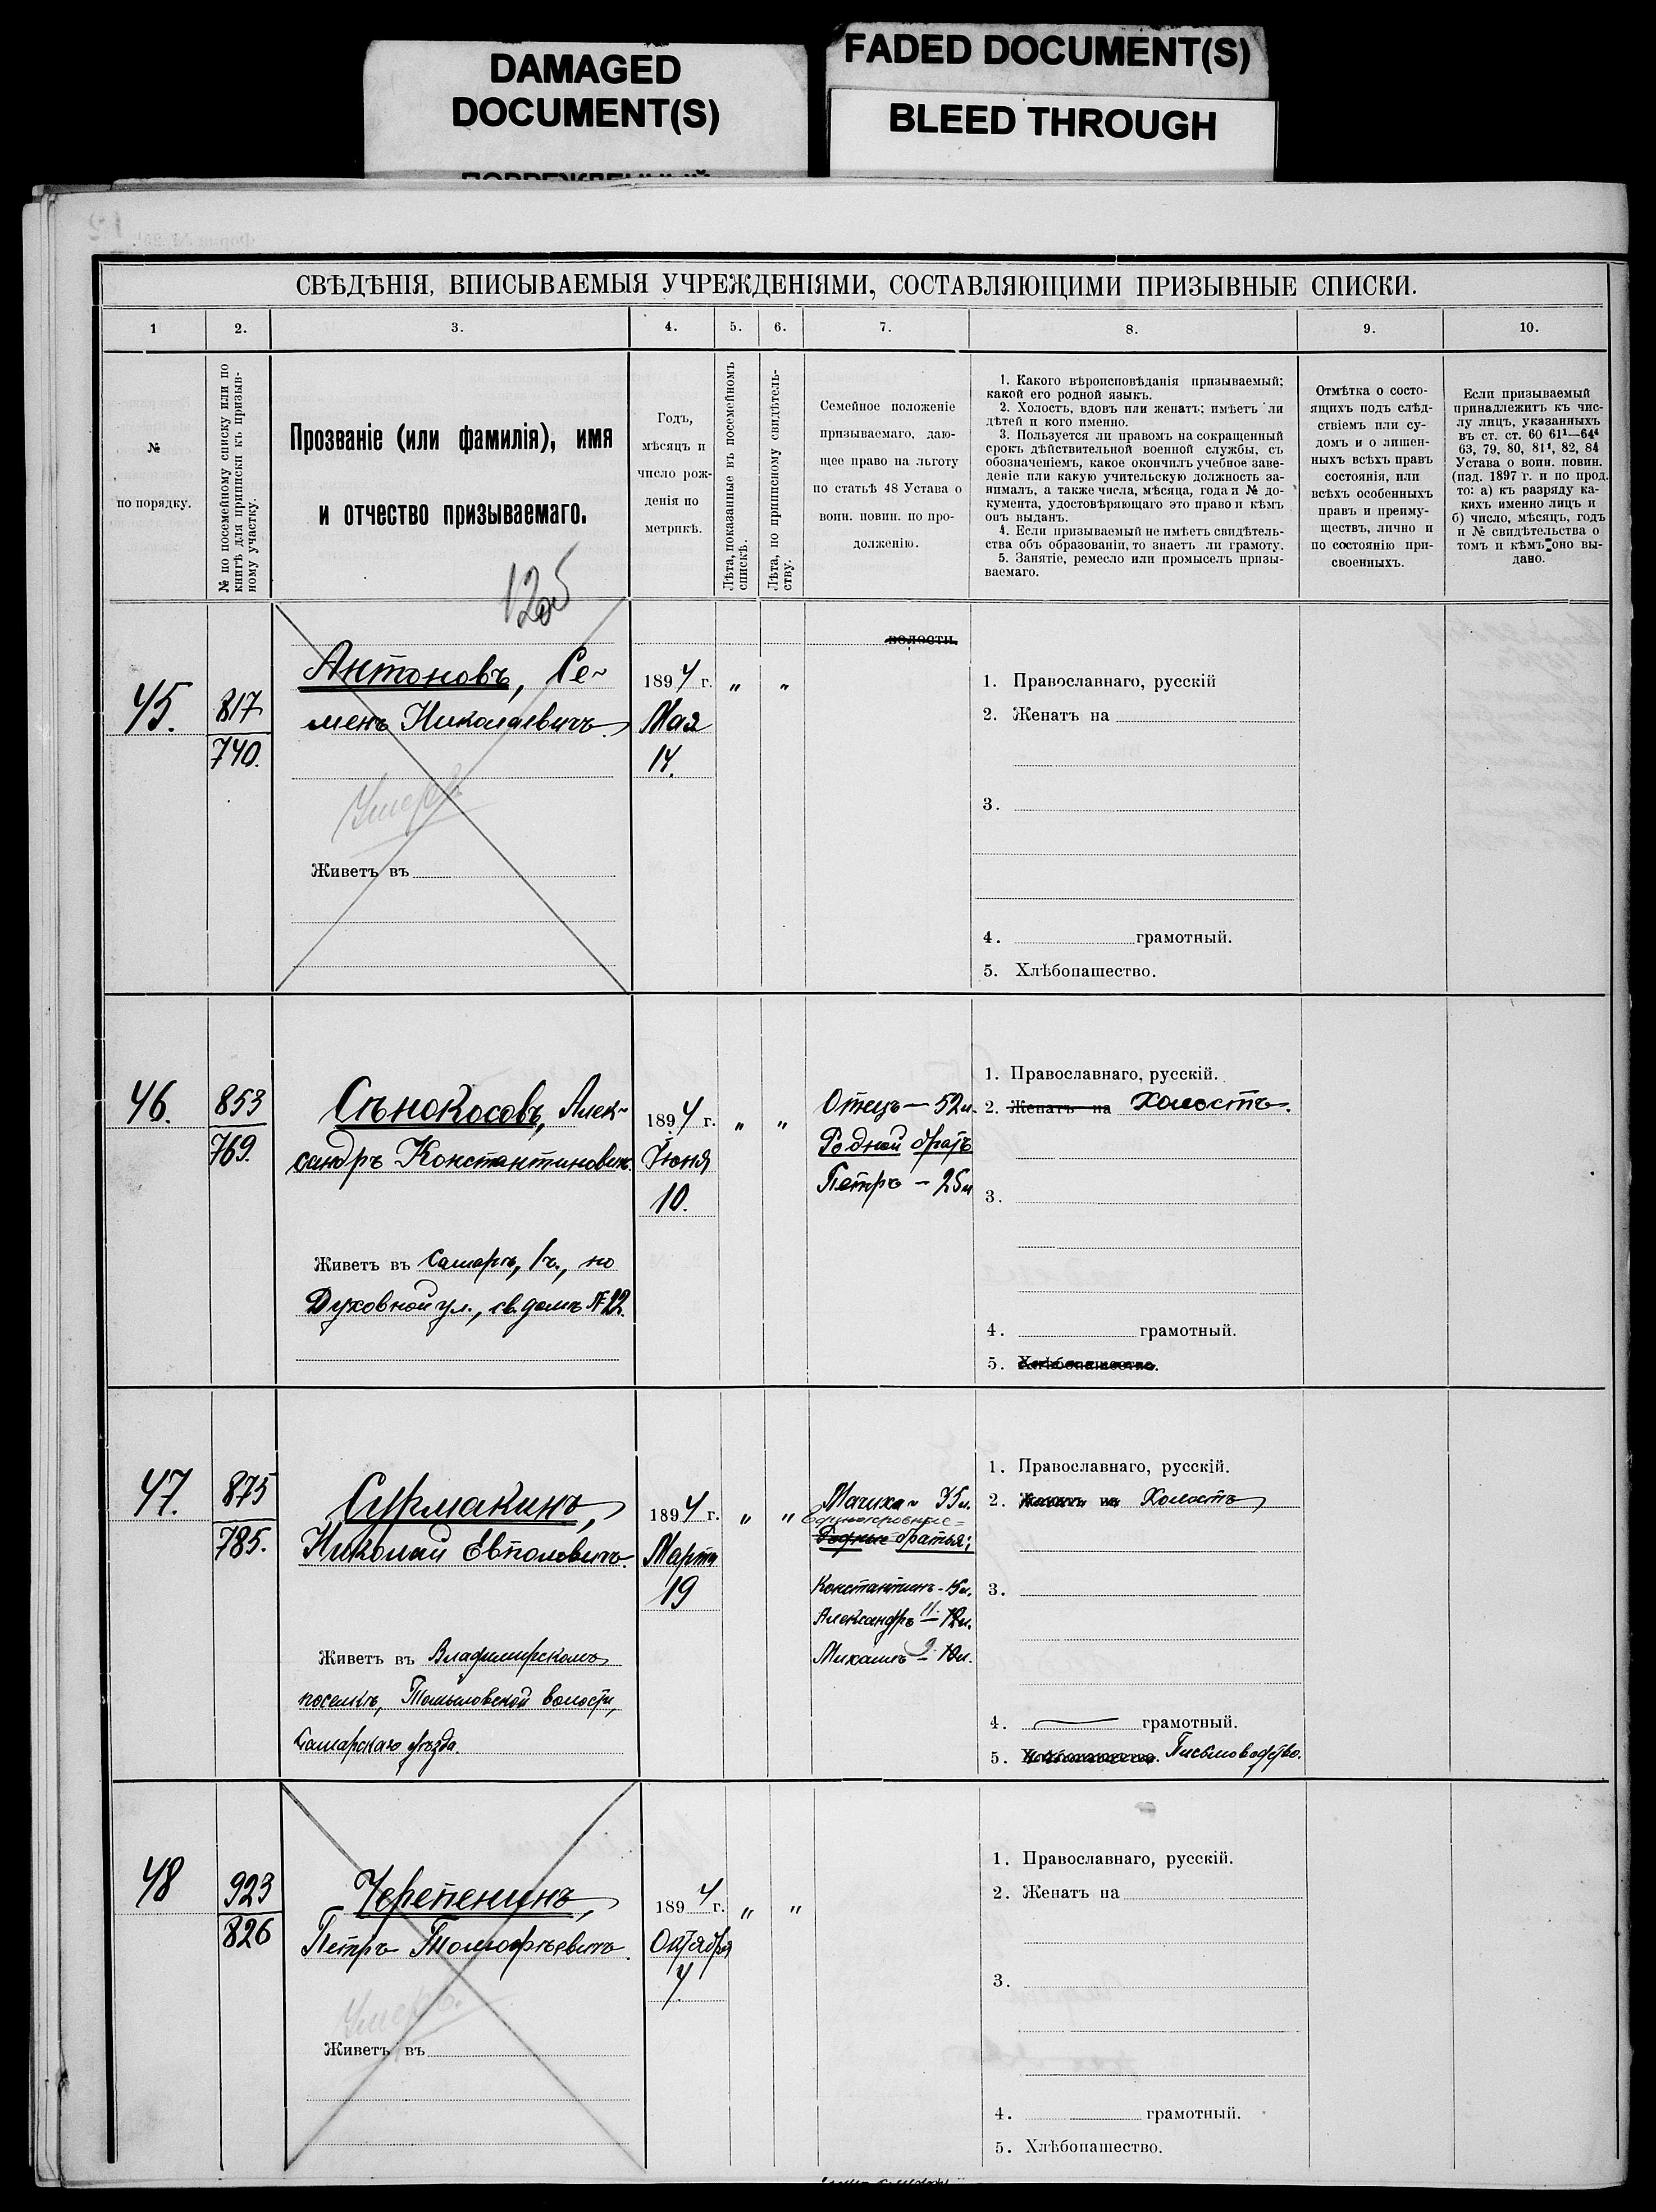 DAMAGED
DOCUMENT(S)
FADED DOCUMENT(S)
BLEED THROUGH
СВѢДѢНІЯ, ВПИСЫВАЕМЫЯ УЧРЕЖДЕНІЯМИ, СОСТАВЛЯЮЩИМИ ПРИЗЫВНЫЕ СПИСКИ.
1 2. 3. 4. 5. 6. 7. 8. 9. 10.
№
по порядку.
№ по посемейному списку или по
книгѣ для приписки къ призыв-
ному участку.
Прозваніе (или фамилія), имя
и отчество призываемаго.
125
Годъ,
мѣсяцъ и
число рож-
денія по
метрикѣ.
Лѣта, показанные въ посемейномъ
спискѣ.
Лѣта, по приписному свидѣтель-
ству.
Семейное положеніе
призываемаго, даю-
щее право на льготу
по статьѣ 48 Устава о
воин. повин. по про-
долженію.
1. Какого вѣроисповѣданія призываемый;
какой его родной языкъ.
2. Холостъ, вдовъ или женатъ; имѣетъ ли
дѣтей и кого именно.
3. Пользуется ли правомъ на сокращенный
срокъ дѣйствительной военной службы, съ
обозначеніемъ, какое окончилъ учебное заве-
деніе или какую учительскую должность за-
нималъ, а также числа, мѣсяца, года и № до-
кумента, удостовѣряющаго это право и кѣмъ
онъ выданъ.
4. Если призываемый не имѣетъ свидѣтель-
ства объ образованіи, то знаетъ ли грамоту.
5. Занятіе, ремесло или промыселъ призы-
ваемаго.
Отмѣтка о состо-
ящихъ подъ слѣд-
ствіемъ или су-
домъ и о лишен-
ныхъ всѣхъ правъ
состоянія, или
всѣхъ особенныхъ
правъ и преиму-
ществъ, лично и
по состоянію при-
своенныхъ.
Если призываемый
принадлежитъ къ чис-
лу лицъ, указанныхъ
въ ст. ст. 60 61¹—64⁴
63, 79, 80, 81¹, 82, 84
Устава о воин. повин.
(изд. 1897 г. и по прод.
то: а) къ разряду ка-
кихъ именно лицъ и
б) число, мѣсяцъ, годъ
и № свидѣтельства о
томъ и кѣмъ оно вы-
дано.
45.
817
740.
Антоновъ, Се-
менъ Николаевичъ.
Умеръ
Живетъ въ
1894 г.
Мая
14.
" "
волости.
1. Православнаго, русскій
2. Женатъ на
3.
4. грамотный.
5. Хлѣбопашество.
46.
853
769.
Сѣнокосовъ, Алек-
сандръ Константиновичъ.
Живетъ въ Самарѣ, 1ч., по
Духовной ул., св. домъ № 12.
1894 г.
Іюня
10.
" "
Отецъ — 52 л.
Родной братъ
Петръ — 25 л
1. Православнаго, русскій.
2. Женатъ на Холостъ.
3.
4. грамотный.
5. Хлѣбопашество.
47.
875
785.
Сурмакинъ,
Николай Евполовичъ.
Живетъ въ Владимірскомъ
поселкѣ, Томыловской волости,
Самарскаго уѣзда.
1894 г.
Марта
19
" "
Мачиха - 35 л.
Единокровные
Родные братья:
Константинъ - 15 л.
Александръ 11 - 12 л.
Михаилъ 9 - 10 л.
1. Православнаго, русскій.
2. Женатъ на Холостъ
3.
4. грамотный.
5. Хлѣбопашество. Письмоводство.
48
923
826
Черепенинъ,
Петръ Тимофѣевичъ.
Умеръ.
Живетъ въ
1894 г.
Октября
4
" "
1. Православнаго, русскій.
2. Женатъ на
3.
4. грамотный.
5. Хлѣбопашество.